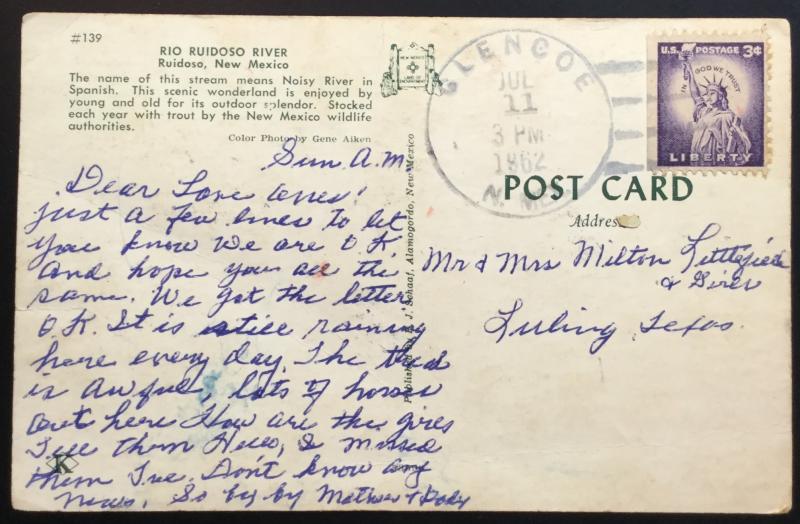 #139
RIO RUIDOSO RIVER
Ruidoso, New Mexico
The name of this stream means Noisy River in
Spanish. This scenic wonderland is enjoyed by
young and old for its outdoor splendor. Stocked
each year with trout by the New Mexico wildlife
authorities.
Color Photo by Gene Aiken
Sun A.M.
Dear Love ones'
just a few lines to let
you know We are O K
and hope you are the
same. We got the letter
O.K. It is still raining
here every day. The
is awful, lots of horses
out here How are the girls
Tell them Hello, I missed
them Tue. Don't know any
News. So by by Mother & Dady
K
Published by J. Schaaf, Alamogordo, New Mexico
GLENCOE
JUL
11
3 PM
1962
N. M.
U.S. POSTAGE 3¢
IN GOD WE TRUST
LIBERTY
POST CARD
Address
Mr & Mrs Milton Littlefield
& Girls
Luling, Texas.